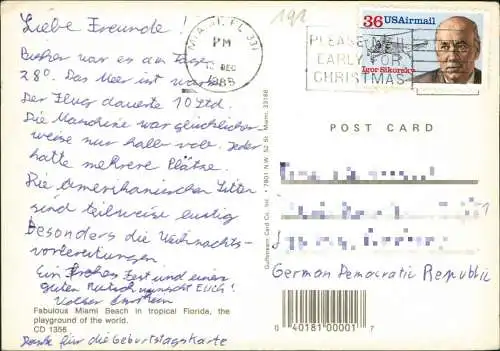 Liebe Freunde!
Bisher war es am Tage
28°. Das Meer ist warm.
Der Flug dauerte 10 Std.
Die Maschine war glücklicher-
weise nur halb voll. Jeder
hatte mehrere Plätze.
Die amerikanischen Sitten
sind teilweise lustig
besonders die Weihnachts-
vorbereitungen.
Ein Frohes Fest und einen
guten Rutsch wünscht EUCH!
Volker
Danke für die Geburtstagskarte
Fabulous Miami Beach in tropical Florida, the
playground of the world.
CD 1356
Gulfstream Card Co. Inc. • 7801 N.W. 52 St. Miami, 33166
191
MIAMI, FL 331
PM
DEC
PLEASE MAIL
EARLY FOR
CHRISTMAS
36 USAirmail
Igor Sikorsky
POST CARD
German Democratic Republic
0 40181 00001 7